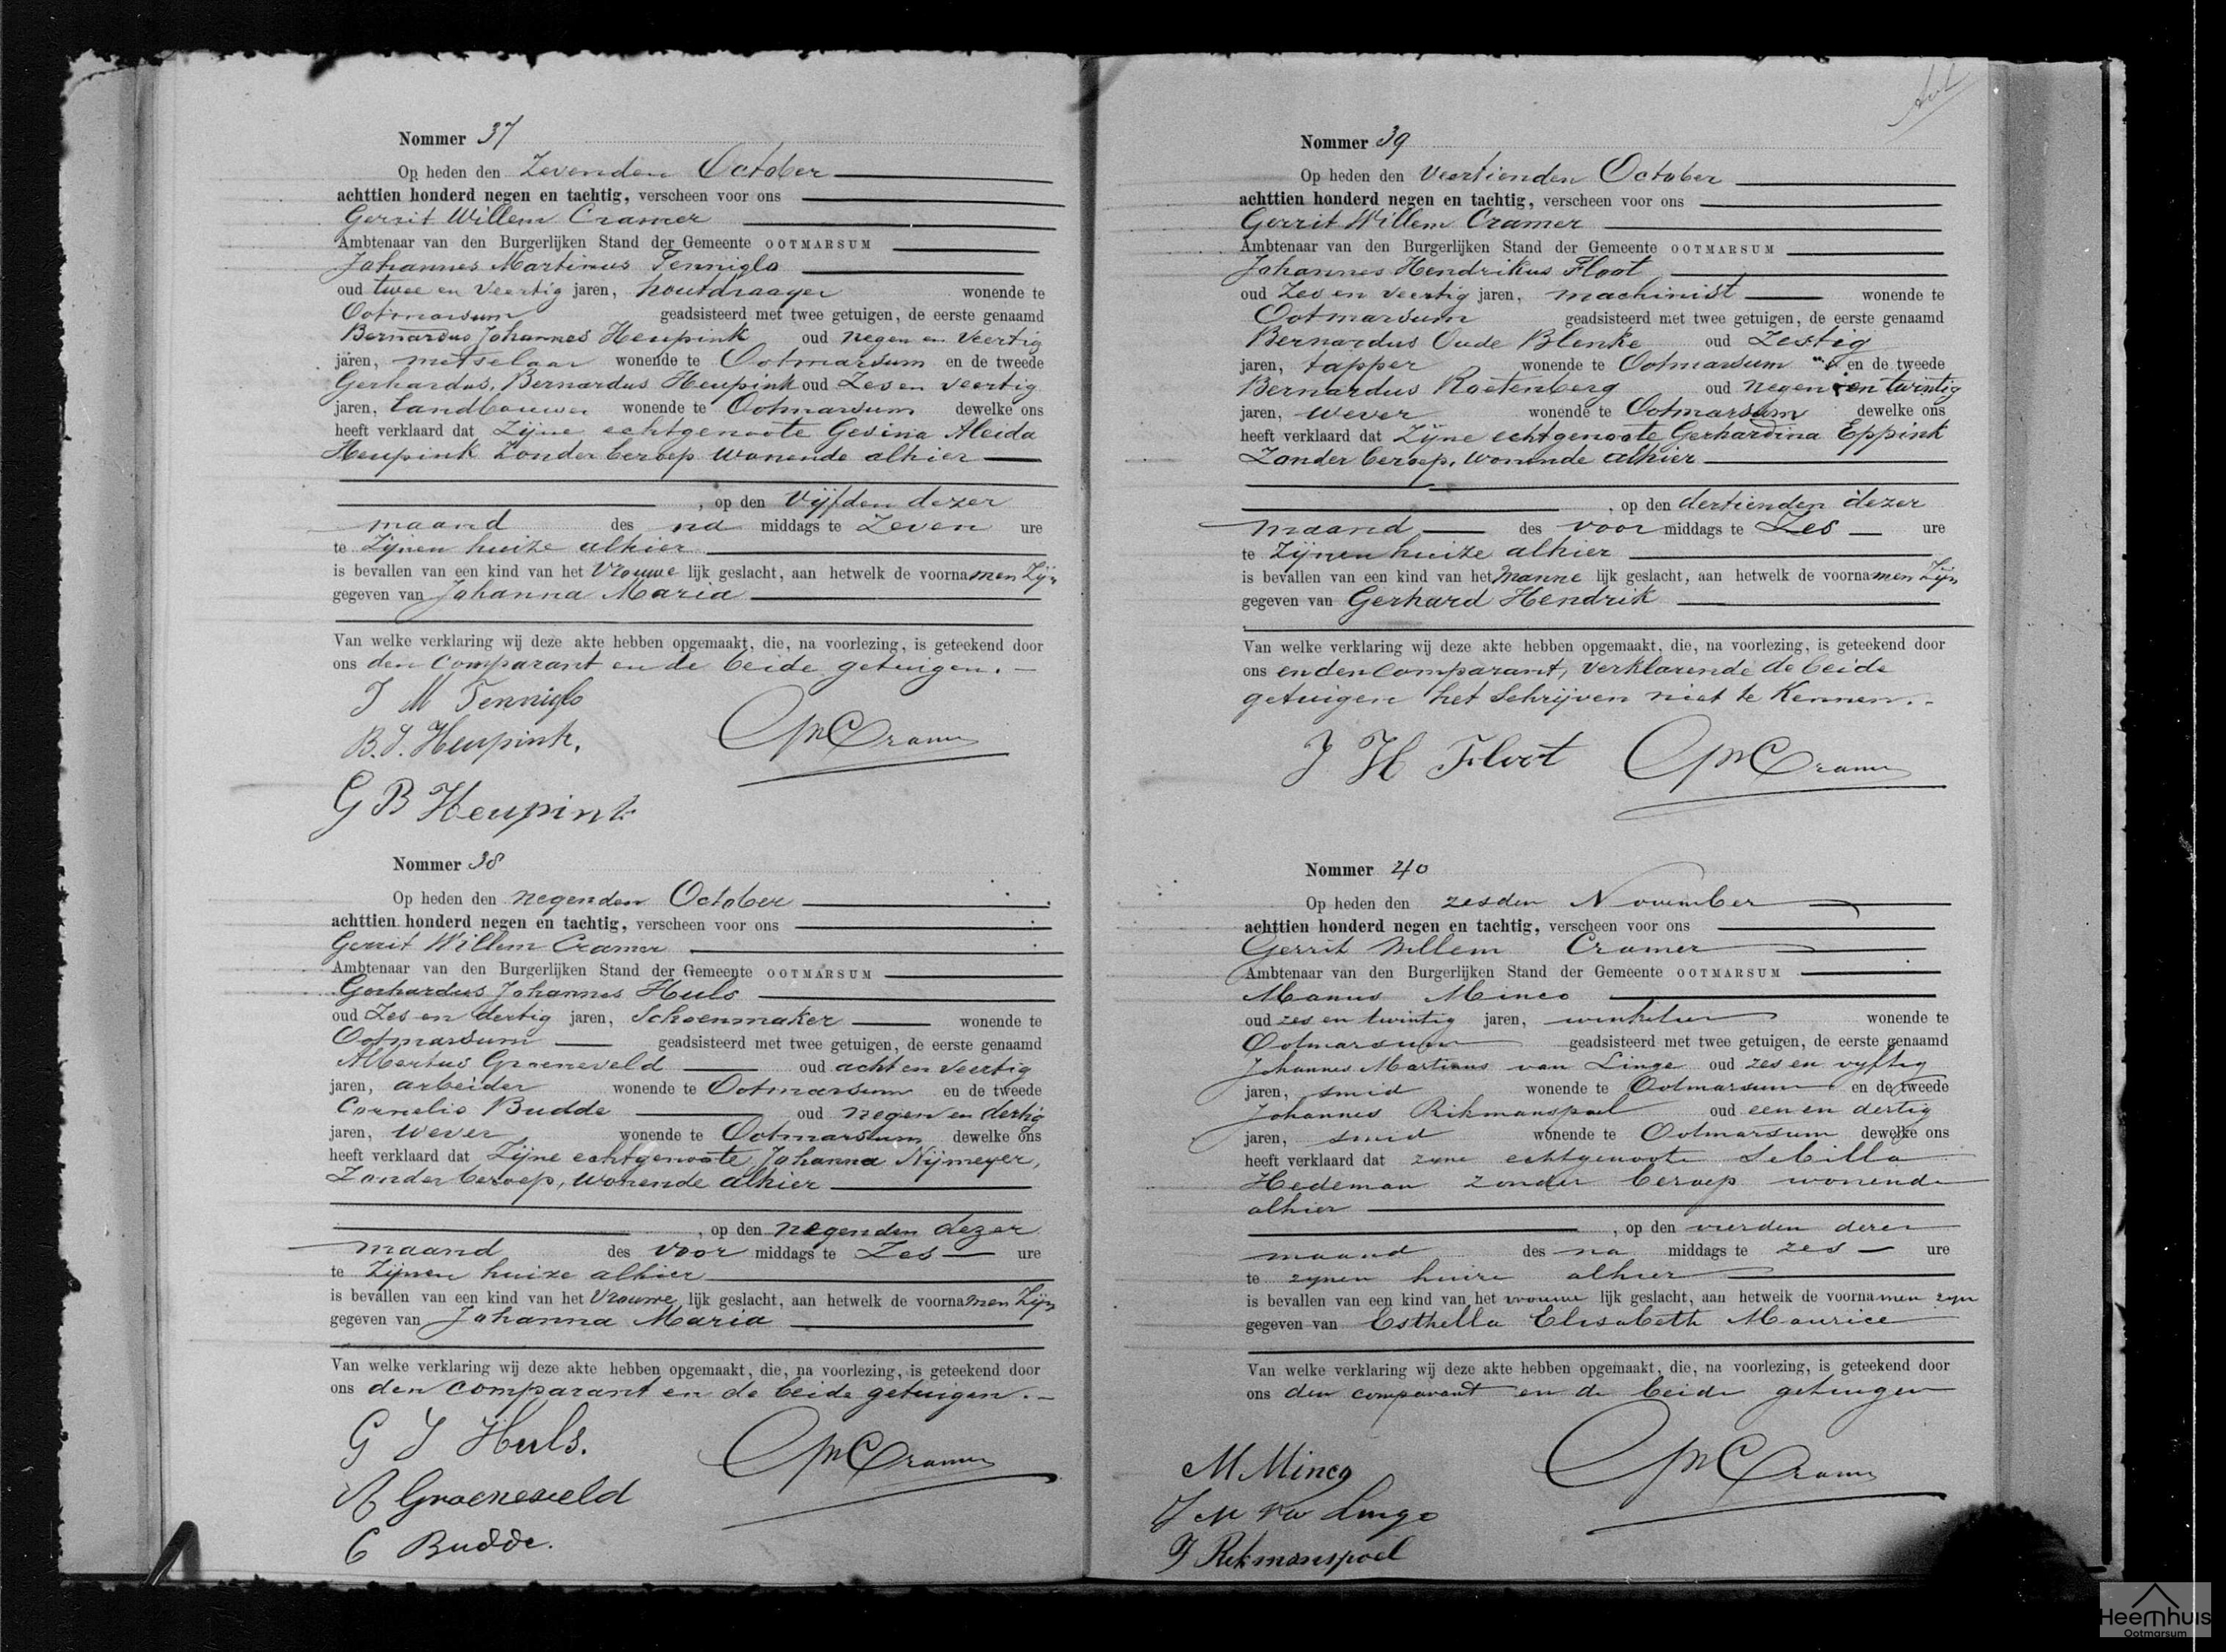 Nommer 37
Op heden den Zevenden October
achttien honderd negen en tachtig, verscheen voor ons
Gerrit Willem Cramer
Ambtenaar van den Burgerlijken Stand der Gemeente OOTMARSUM
Johannes Martinus Tenniglo
oud twee en Veertig jaren, houtdraager wonende te
Ootmarsum geadsisteerd met twee getuigen, de eerste genaamd
Bernardus Johannes Heupink oud negen en Veertig
jaren, metselaar wonende te Ootmarsum en de tweede
Gerhardus, Bernardus Heupink oud Zes en Veertig
jaren, Landbouwer wonende te Ootmarsum dewelke ons
heeft verklaard dat Zijne echtgenoote Gesina Aleida
Heupink Zonder beroep wonende alhier
, op den Vijfden dezer
maand des na middags te Zeven ure
te Zijnen huize alhier
is bevallen van een kind van het Vrouwe lijk geslacht, aan hetwelk de voornamen Zijn
gegeven van Johanna Maria
Van welke verklaring wij deze akte hebben opgemaakt, die, na voorlezing, is geteekend door
ons den Comparant en de beide getuigen.
J M Tenniglo
B. J. Heupink.
GWCramer
G B Heupink
Nommer 38
Op heden den negenden October
achttien honderd negen en tachtig, verscheen voor ons
Gerrit Willem Cramer
Ambtenaar van den Burgerlijken Stand der Gemeente OOTMARSUM
Gerhardus Johannes Huls
oud Zes en dertig jaren, Schoenmaker wonende te
Ootmarsum geadsisteerd met twee getuigen, de eerste genaamd
Albertus Groeneveld oud acht en Veertig
jaren, arbeider wonende te Ootmarsum en de tweede
Cornelis Budde oud negen en dertig
jaren, wever wonende te Ootmarsum dewelke ons
heeft verklaard dat Zijne echtgenoote Johanna Nijmeyer,
Zonder beroep, wonende alhier
, op den negenden dezer
maand des voor middags te Zes ure
te Zijnen huize alhier
is bevallen van een kind van het Vrouwe lijk geslacht, aan hetwelk de voornamen Zijn
gegeven van Johanna Maria
Van welke verklaring wij deze akte hebben opgemaakt, die, na voorlezing, is geteekend door
ons den comparant en de beide getuigen.
G J Huls.
GWCramer
A Groeneveld
C Budde.
Nommer 39
Op heden den Veertienden October
achttien honderd negen en tachtig, verscheen voor ons
Gerrit Willem Cramer
Ambtenaar van den Burgerlijken Stand der Gemeente OOTMARSUM
Johannes Hendrikus Floot
oud Zes en veertig jaren, machinist wonende te
Ootmarsum geadsisteerd met twee getuigen, de eerste genaamd
Bernardus Oude Blenke oud Zestig
jaren, tapper wonende te Ootmarsum en de tweede
Bernardus Roetenberg oud negen en twintig
jaren, wever wonende te Ootmarsum dewelke ons
heeft verklaard dat Zijne echtgenoote Gerhardina Eppink
Zonder beroep, wonende alhier
, op den dertienden dezer
maand des voor middags te Zes ure
te Zijnen huize alhier
is bevallen van een kind van het Manne lijk geslacht, aan hetwelk de voornamen Zijn
gegeven van Gerhard Hendrik
Van welke verklaring wij deze akte hebben opgemaakt, die, na voorlezing, is geteekend door
ons en den Comparant, verklarende de beide
getuigen het Schrijven niet te Kennen.
J H Floot GWCramer
Nommer 40
Op heden den zesden November
achttien honderd negen en tachtig, verscheen voor ons
Gerrit Willem Cramer
Ambtenaar van den Burgerlijken Stand der Gemeente OOTMARSUM
Manus Minco
oud zes en twintig jaren, winkelier wonende te
Ootmarsum geadsisteerd met twee getuigen, de eerste genaamd
Johannes Martinus van Linge oud zes en vyftig
jaren, smid wonende te Ootmarsum en de tweede
Johannes Rikmanspoel oud een en dertig
jaren, smid wonende te Ootmarsum dewelke ons
heeft verklaard dat zyne echtgenoote Sebilla
Hedeman zonder beroep wonende
alhier
, op den vierden dezer
maand des na middags te zes ure
te zynen huize alhier
is bevallen van een kind van het vrouwe lijk geslacht, aan hetwelk de voornamen zyn
gegeven van Esthella Elisabeth Maurice
Van welke verklaring wij deze akte hebben opgemaakt, die, na voorlezing, is geteekend door
ons den comparant en de beide getuigen
M Minco
GWCramer
J M van Linge
J Rikmanspoel
Heemhuis
Ootmarsum